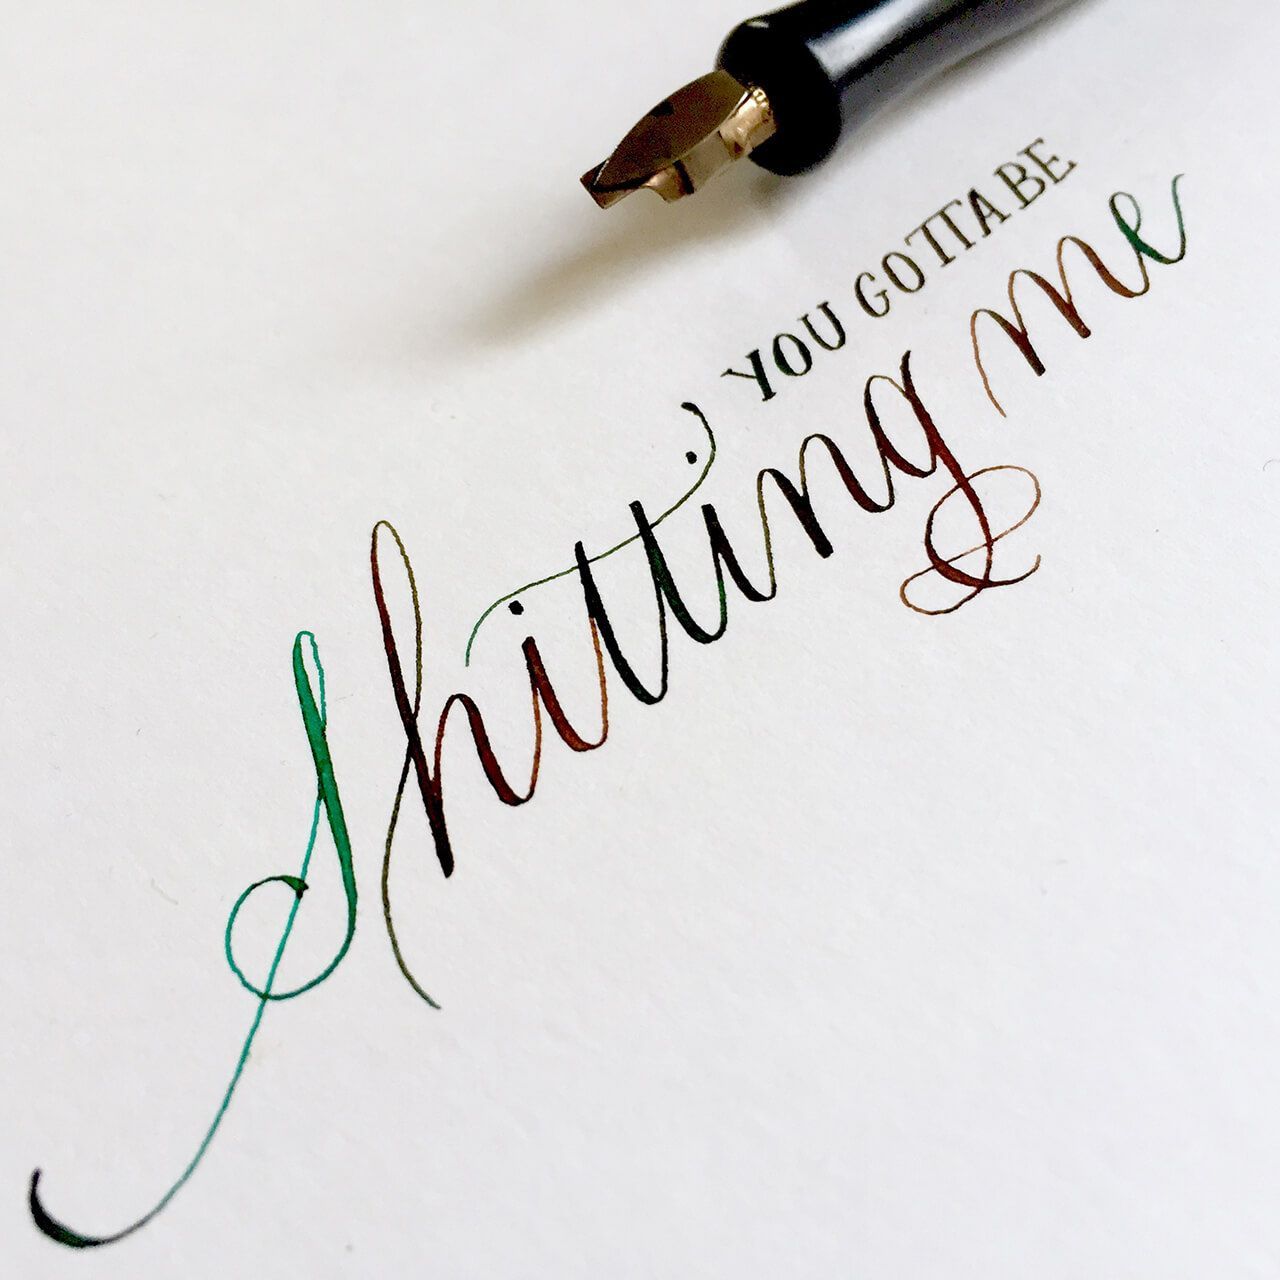 YOU GOTTA BE
Shitting me